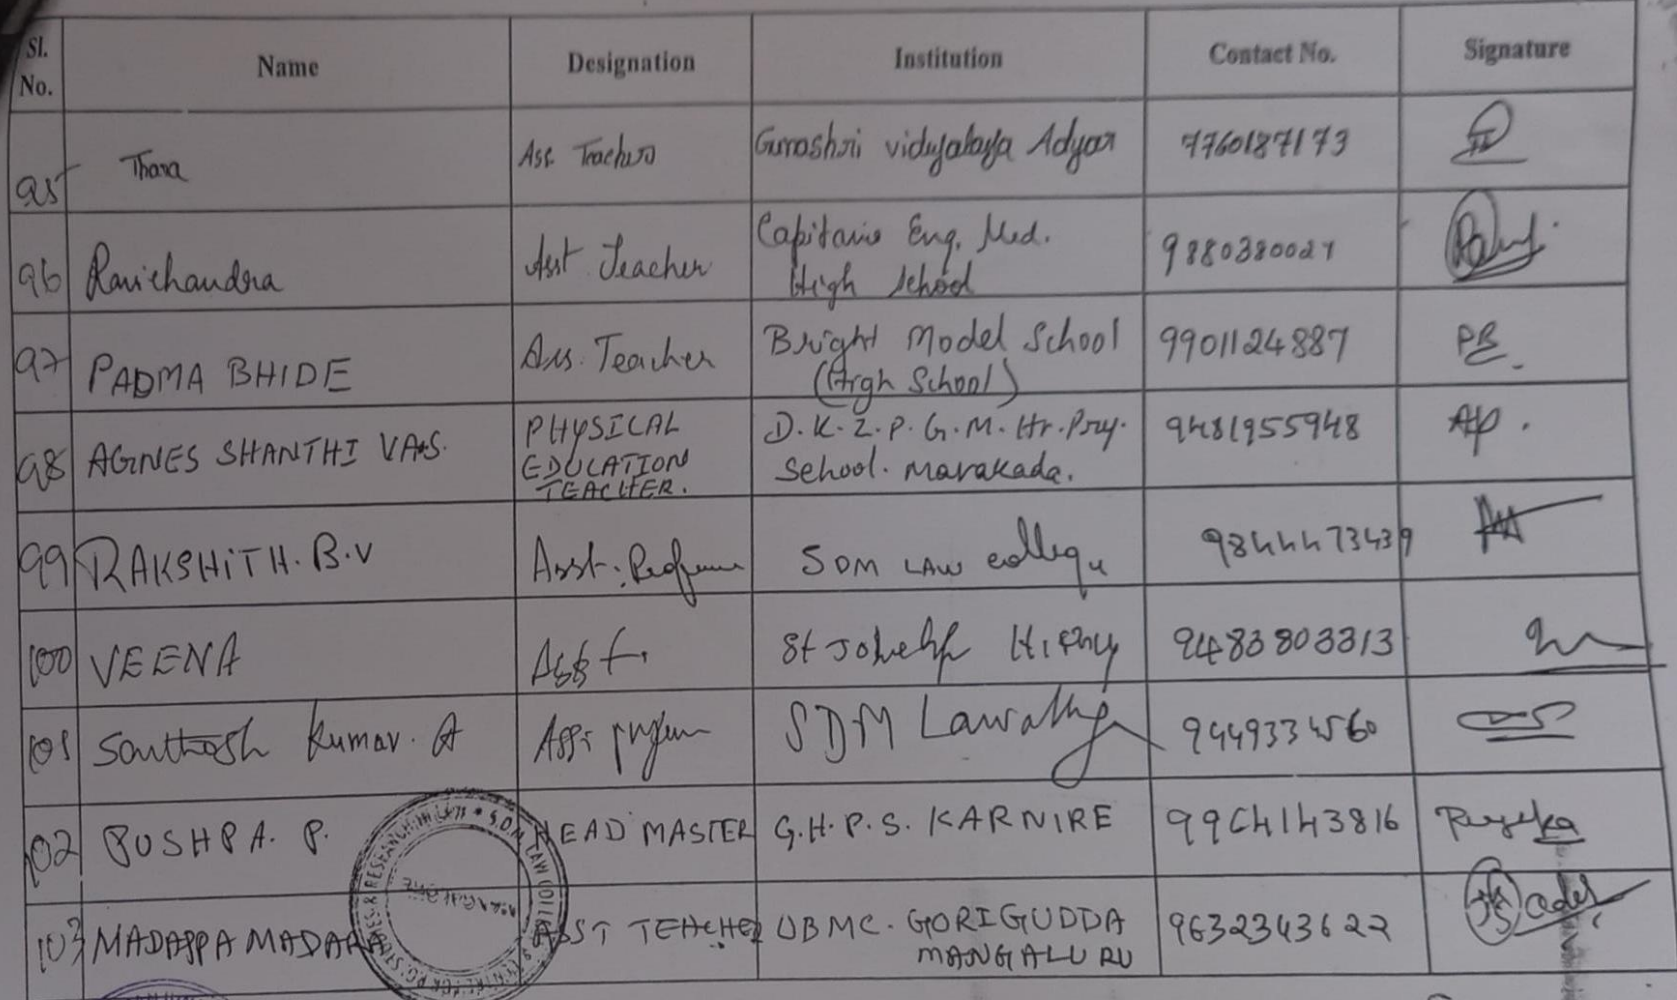 Sl. No. Name Designation Institution Contact No. Signature
95 Thara Ass. Teachers Gurushri vidyalaya Adyar 7760187173
96 Ravichandra Asst Teacher Capitanio Eng. Med. High School 9880380021
97 PADMA BHIDE Ass. Teacher Bright Model School (High School) 9901124887 PB
98 AGNES SHANTHI VAS. PHYSICAL EDUCATION TEACHER. D.K.Z.P.G.M.Hr.Pry. School. Marakada. 9481955948 AP.
99 RAKSHITH. B.V Asst. Professor SDM LAW college 9844473439
100 VEENA Asst. St Joseph 9483803313
101 Santhosh Kumar. A Asst SDM Law college 9449334560
102 PUSHPA. P. HEAD MASTER G.H.P.S. KARNIRE 9964143816
103 MADAPPA MADARA ASST TEACHER UBMC. GORIGUDDA MANGALURU 9632343622
S.D.M. LAW COLLEGE CENTRE FOR P.G. STUDIES & RESEARCH IN LAW
MANGALORE